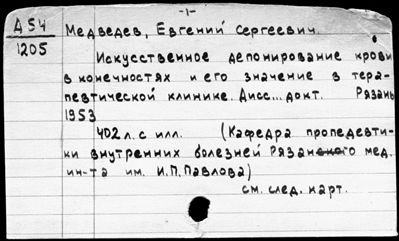 -1-
Д 54
1205
Медведев, Евгений Сергеевич.
Искусственное депонирование крови
в конечностях и его значение в тера-
певтической клинике. Дисс...докт. Рязань
1953
402 л. с илл. (Кафедра пропедевти-
ки внутренних болезней Рязанского мед.
ин-та им. И.П.Павлова)
см. след. карт.